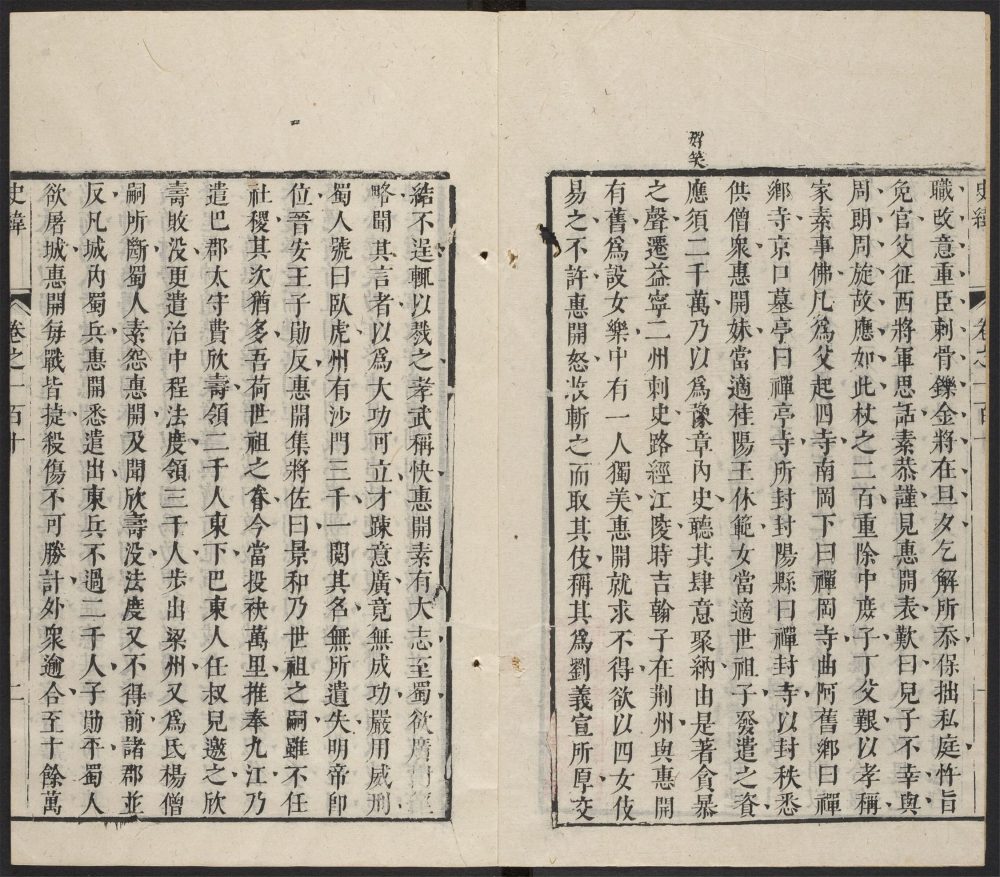 史緯
卷之一百十
職改意重臣刺骨鑠金將在旦夕乞解所忝保拙私庭忤旨
免官父征西將軍思話素恭謹見惠開表歎曰兒子不幸與
周朗周旋故應如此杖之二百重除中庶子丁父艱以孝稱
家素事佛凡為父起四寺南岡下曰禪岡寺曲阿舊鄉曰禪
鄉寺京口墓亭曰禪亭寺所封封陽縣曰禪封寺以封秩悉
供僧衆惠開妹當適桂陽王休範女當適世祖子發遣之資
應須二千萬乃以為豫章內史聽其肆意聚納由是著貪暴
之聲遷益寧二州刺史路經江陵時吉翰子在荆州與惠開
有舊為設女樂中有一人獨美惠開就求不得欲以四女伎
易之不許惠開怒收斬之而取其伎稱其為劉義宣所厚交
好笑
結不逞輒以戮之孝武稱快惠開素有大志至蜀欲廣
略聞其言者以為大功可立才疎意廣竟無成功嚴用威刑
蜀人號曰臥虎州有沙門三千一閱其名無所遺失明帝即
位晉安王子勛反惠開集將佐曰景和乃世祖之嗣雖不任
社稷其次猶多吾荷世祖之眷今當投袂萬里推奉九江乃
遣巴郡太守費欣壽領二千人東下巴東人任叔兒邀之欣
壽敗沒更遣治中程法度領三千人步出梁州又為氐楊僧
嗣所斷蜀人素怨惠開及聞欣壽没法度又不得前諸郡並
反凡城內蜀兵惠開悉遣出東兵不過二千人子勛平蜀人
欲屠城惠開每戰皆捷殺傷不可勝計外衆逾合至十餘萬
史緯
卷之一百十
二